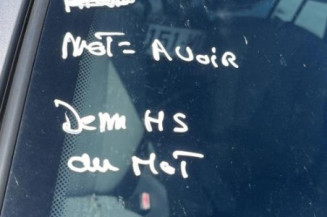 MOT = A VOIR
Dem HS
ou MOT